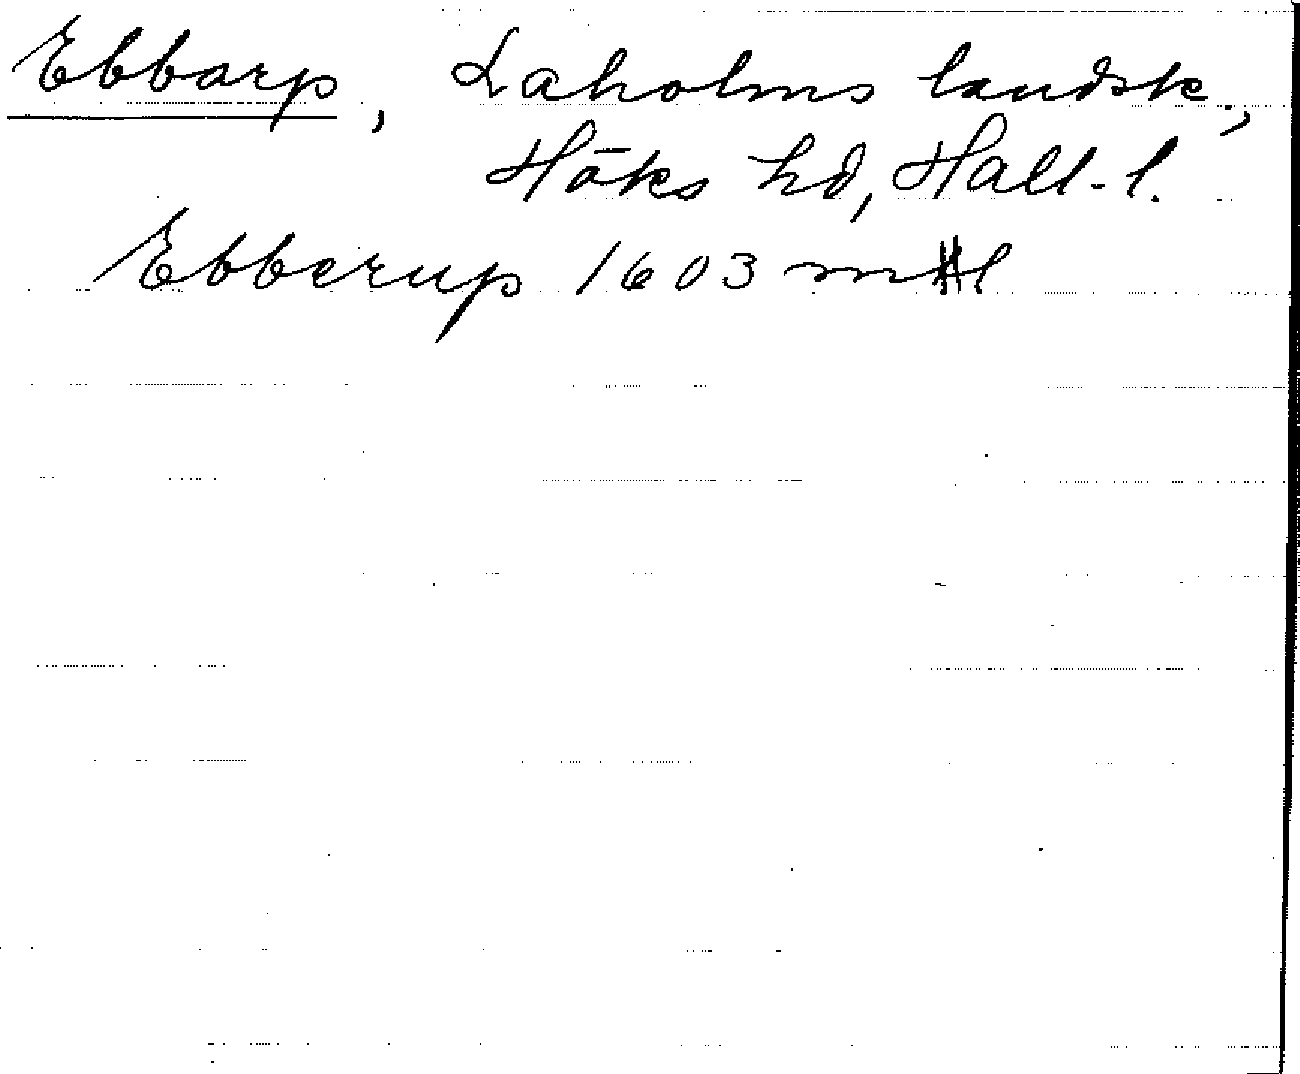 Ebbarp, Laholms landsk.,
Höks hd, Hall. l.
Ebberup 1603